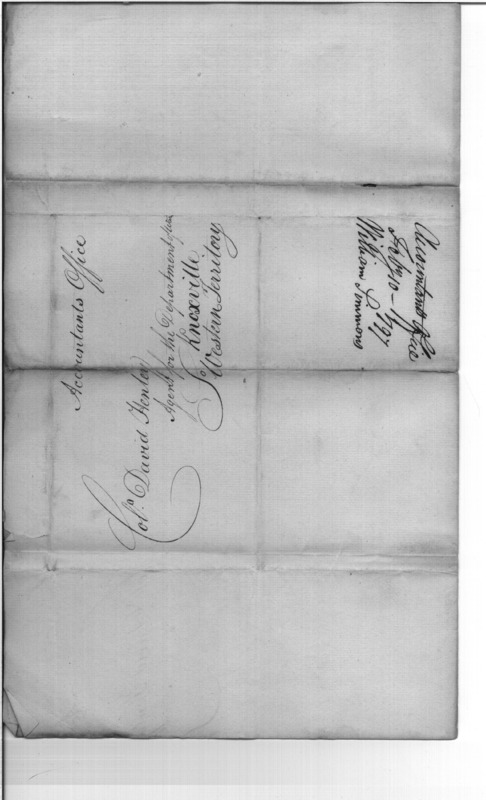 Accountants Office
Colo. David Henley
Agent for the Department of War
Knoxville
So. Western Territory
Accountants Office
1797
William Simmons